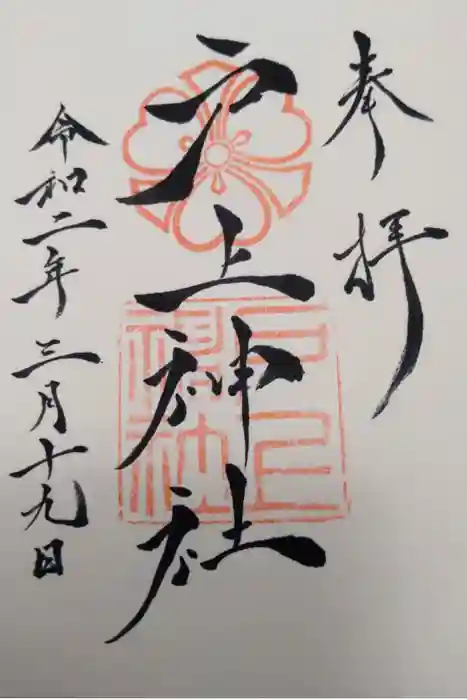 奉拝
戸上神社
令和二年三月十九日
戸上
神社